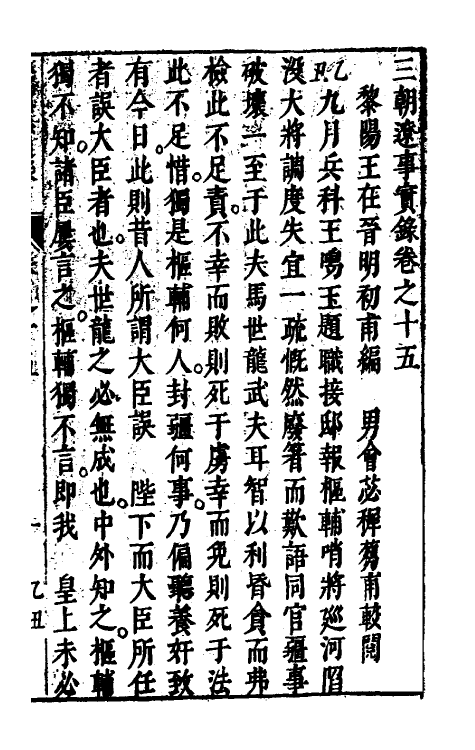 三朝遼事實錄卷之十五
黎陽王在晉明初甫編　男會苾穉芻甫較閱
乙丑九月兵科王鳴玉題職接邸報樞輔哨將廵河陷
沒大將調度失宜一疏慨然廢箸而歎語同官疆事
破壞一至于此夫馬世龍武夫耳智以利昏貪而弗
檢此不足責不幸而敗則死于虜幸而免則死于法
此不足惜獨是樞輔何人封疆何事乃偏聽養奸致
有今日此則昔人所謂大臣誤　陛下而大臣所任
者誤大臣者也夫世龍之必無成也中外知之樞輔
獨不知諸臣屢言之樞輔獨不言即我　皇上未必
一　乙丑